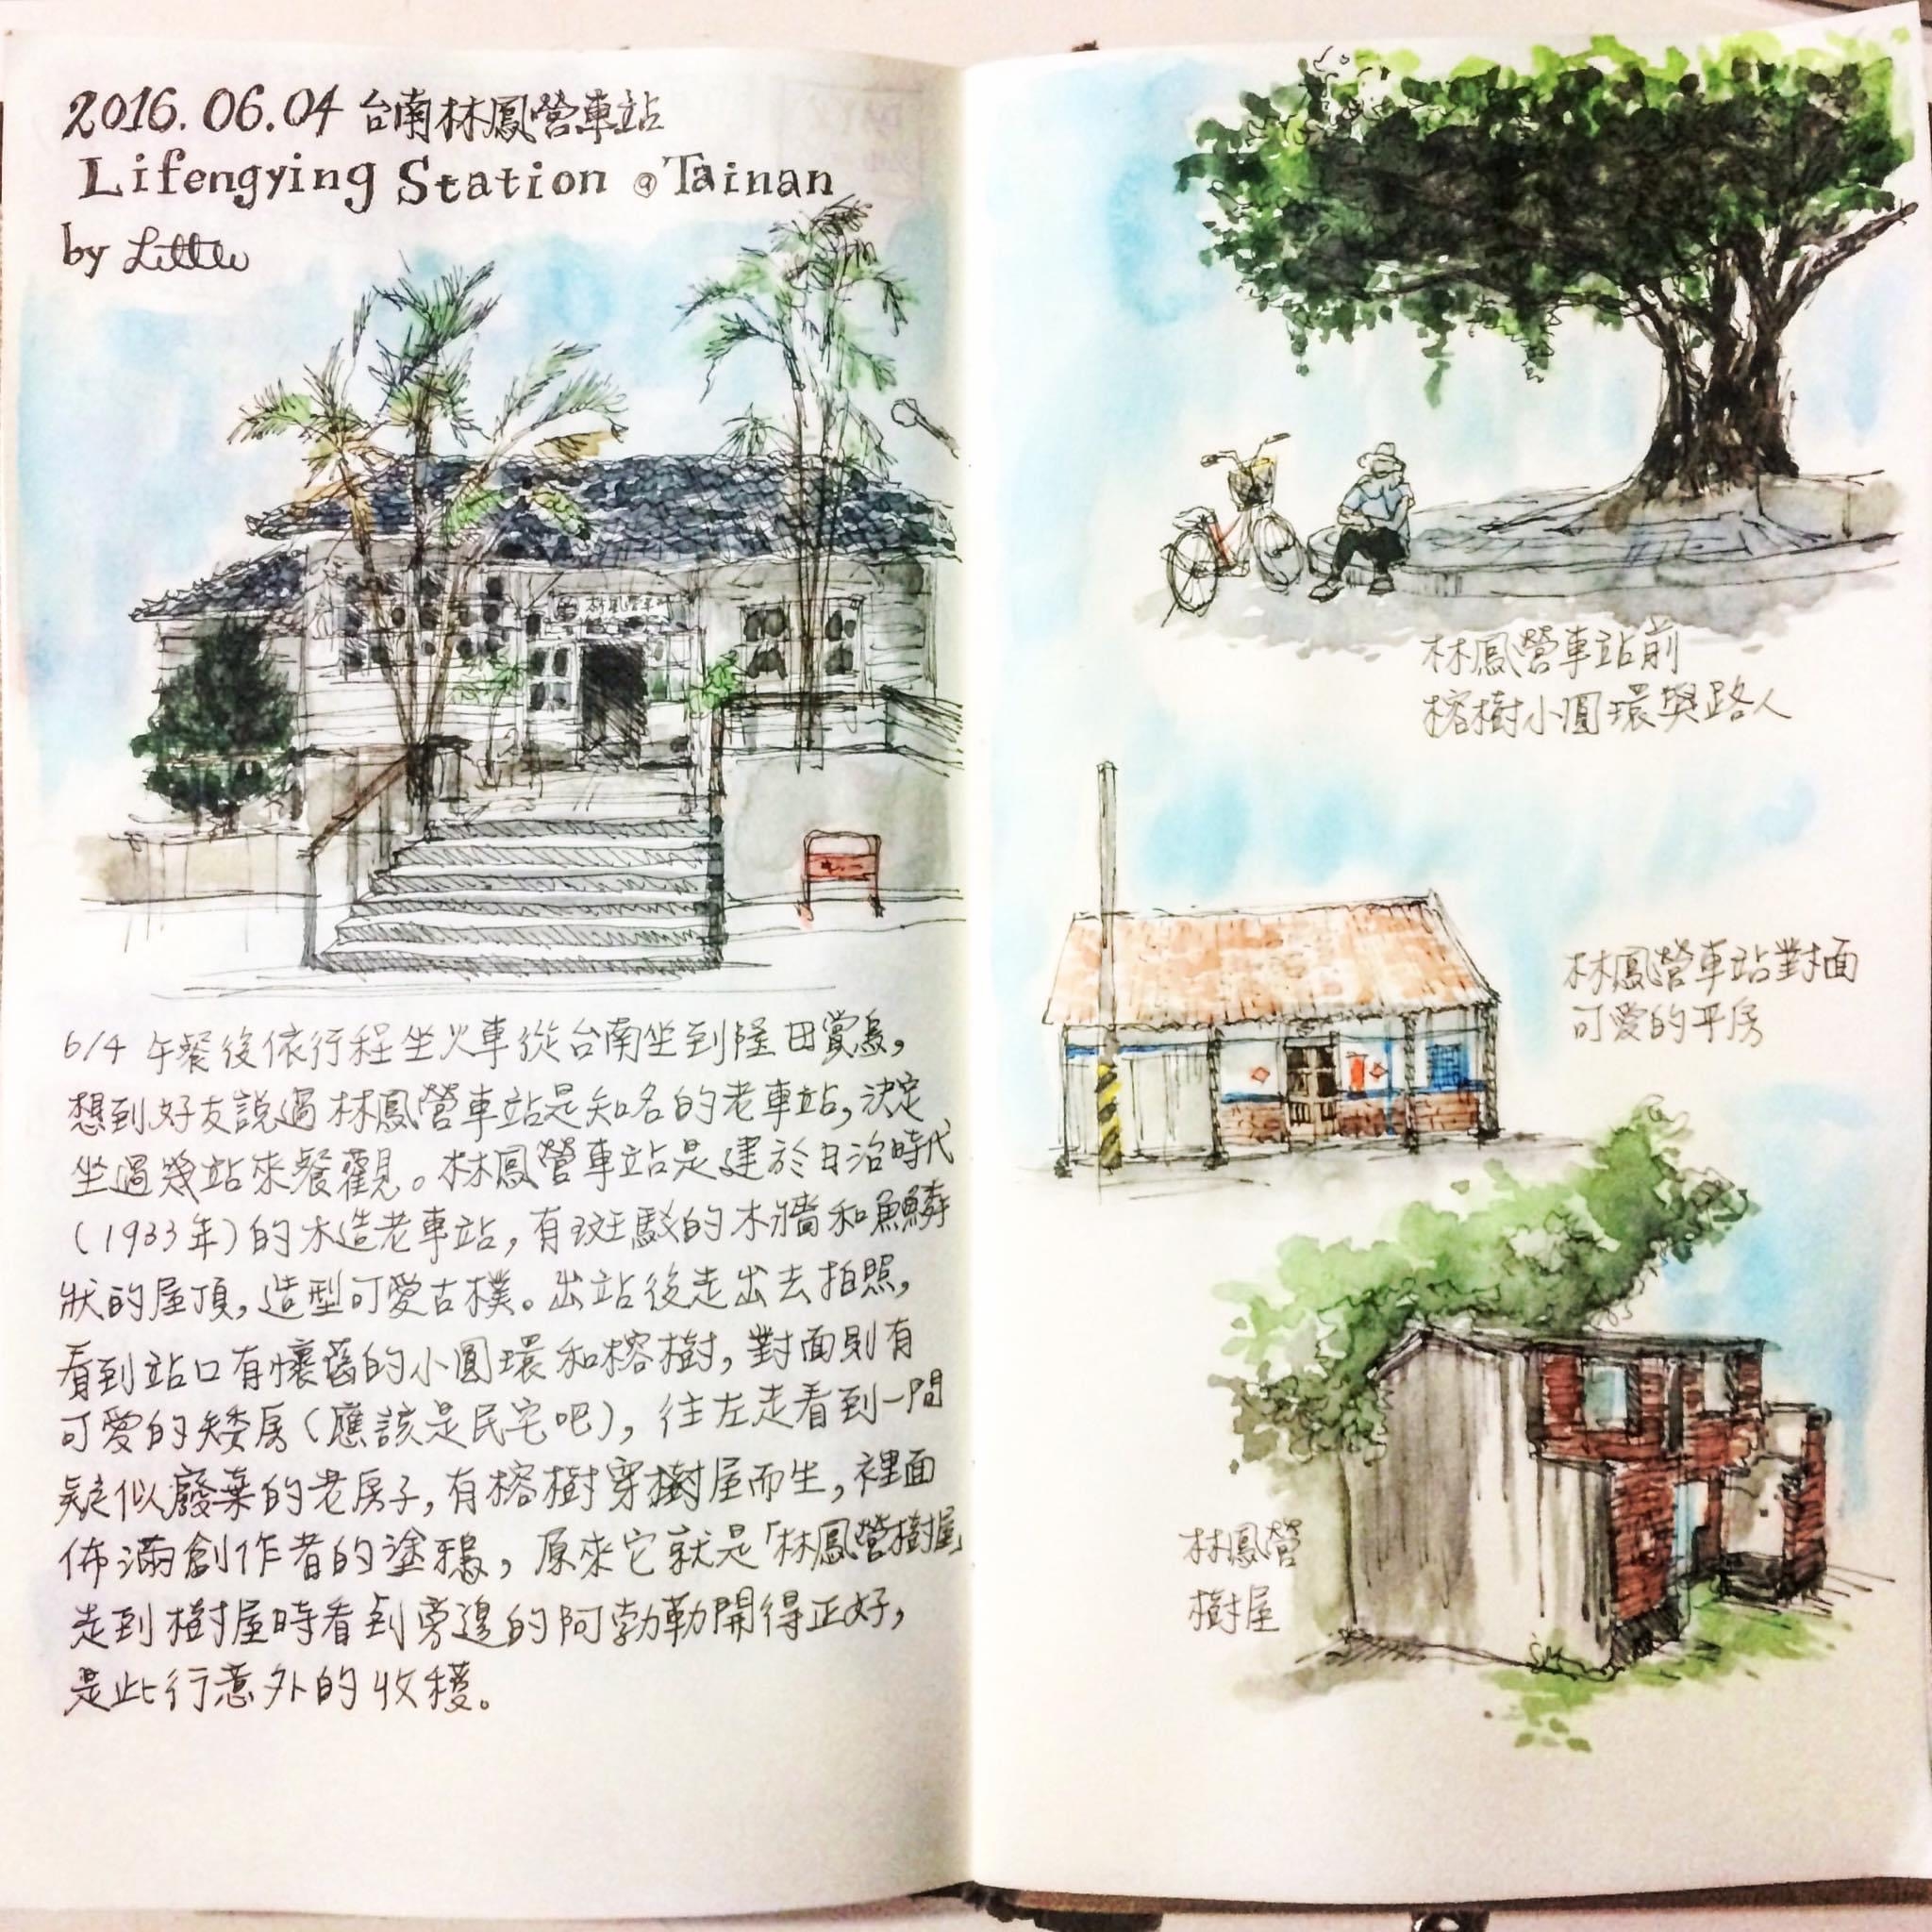 2016.06.04 台南林鳳營車站
Lifengying Station @Tainan
by Little
林鳳營車站
6/4 午餐後依行程坐火車從台南坐到隆田賞鳥,
想到好友說過林鳳營車站是知名的老車站,決定
坐過幾站來餐觀。林鳳營車站是建於日治時代
(1933年)的木造老車站,有斑駁的木牆和魚鱗
狀的屋頂,造型可愛古樸。出站後走出去拍照,
看到站口有懷舊的小圓環和榕樹,對面則有
可愛的矮房(應該是民宅吧),往左走看到一間
疑似廢棄的老房子,有榕樹穿樹屋而生,裡面
佈滿創作者的塗鴉,原來它就是「林鳳營樹屋」
走到樹屋時看到旁邊的阿勃勒開得正好,
是此行意外的收穫。
林鳳營車站前
榕樹小圓環與路人
林鳳營車站對面
可愛的平房
林鳳營
樹屋